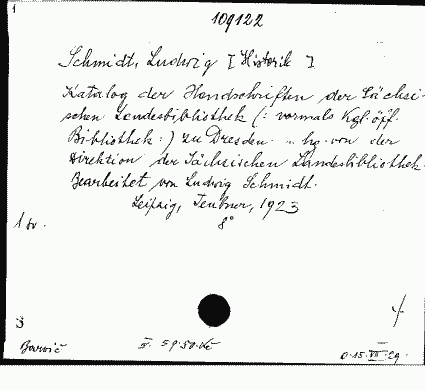 1
109122
Schmidt, Ludwig [Historik]
Katalog der Handschriften der Sächsi-
schen Landesbibliothek (: vormals Kgl. öff.
Bibliothek :) zu Dresden. hg. von der
Direktion der Sächsischen Landesbibliothek.
Bearbeitet von Ludwig Schmidt.
Leipzig, Teubner, 1923
1 sv. 8°
3
Barvič II. 59.50 Kč 0.15.VII.29.